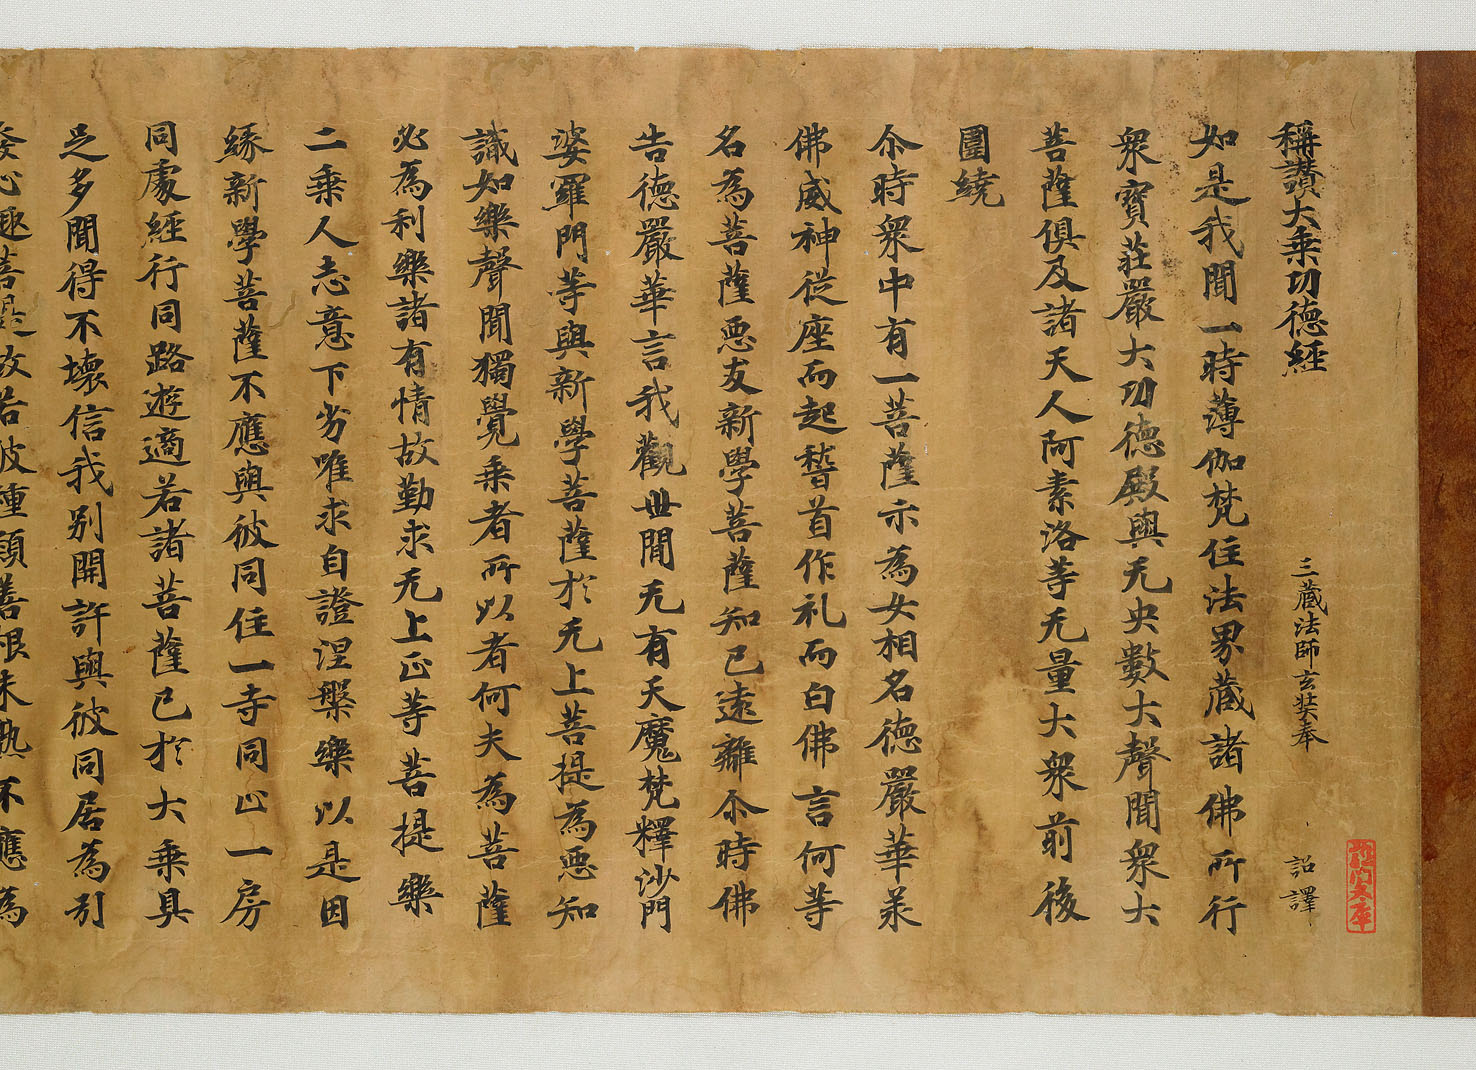 稱讃大乗功德經
三藏法師玄奘奉 詔譯
如是我聞一時薄伽梵住法界藏諸佛所行
衆寶莊嚴大功德殿與无央數大聲聞衆大
菩薩俱及諸天人阿素洛等无量大衆前後
圍繞
尒時衆中有一菩薩示為女相名德嚴華承
佛威神從座而起稽首作礼而白佛言何等
名為菩薩惡友新學菩薩知已遠離尒時佛
告德嚴華言我觀世間无有天魔梵釋沙門
婆羅門等與新學菩薩於无上菩提為惡知
識如樂聲聞獨覺乗者所以者何夫為菩薩
必為利樂諸有情故勤求无上正等菩提樂
二乗人志意下劣唯求自證涅槃樂以是因
緣新學菩薩不應與彼同住一寺同止一房
同處經行同路遊適若諸菩薩已於大乗具
足多聞得不壞信我別開許與彼同居為引
發心趣菩提故若彼種類善根未熟不應為